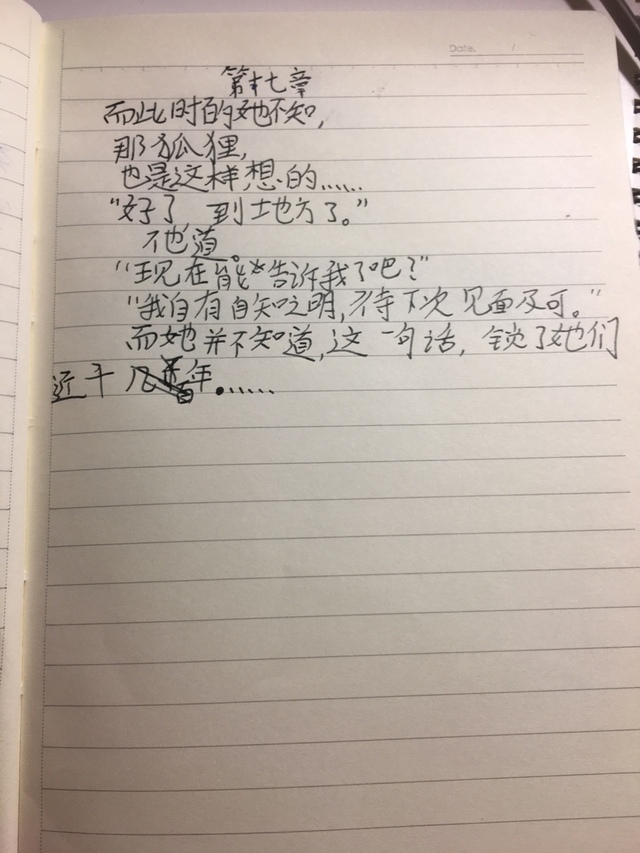 Date. /
第十七章
而此时的她不知,
那狐狸,
也是这样想的……
“好了,到地方了。”
不也道。
“现在能告诉我了吧?”
“我自有自知之明,待下次见面及可。”
而她并不知道,这一句话,锁了她们
近千年……